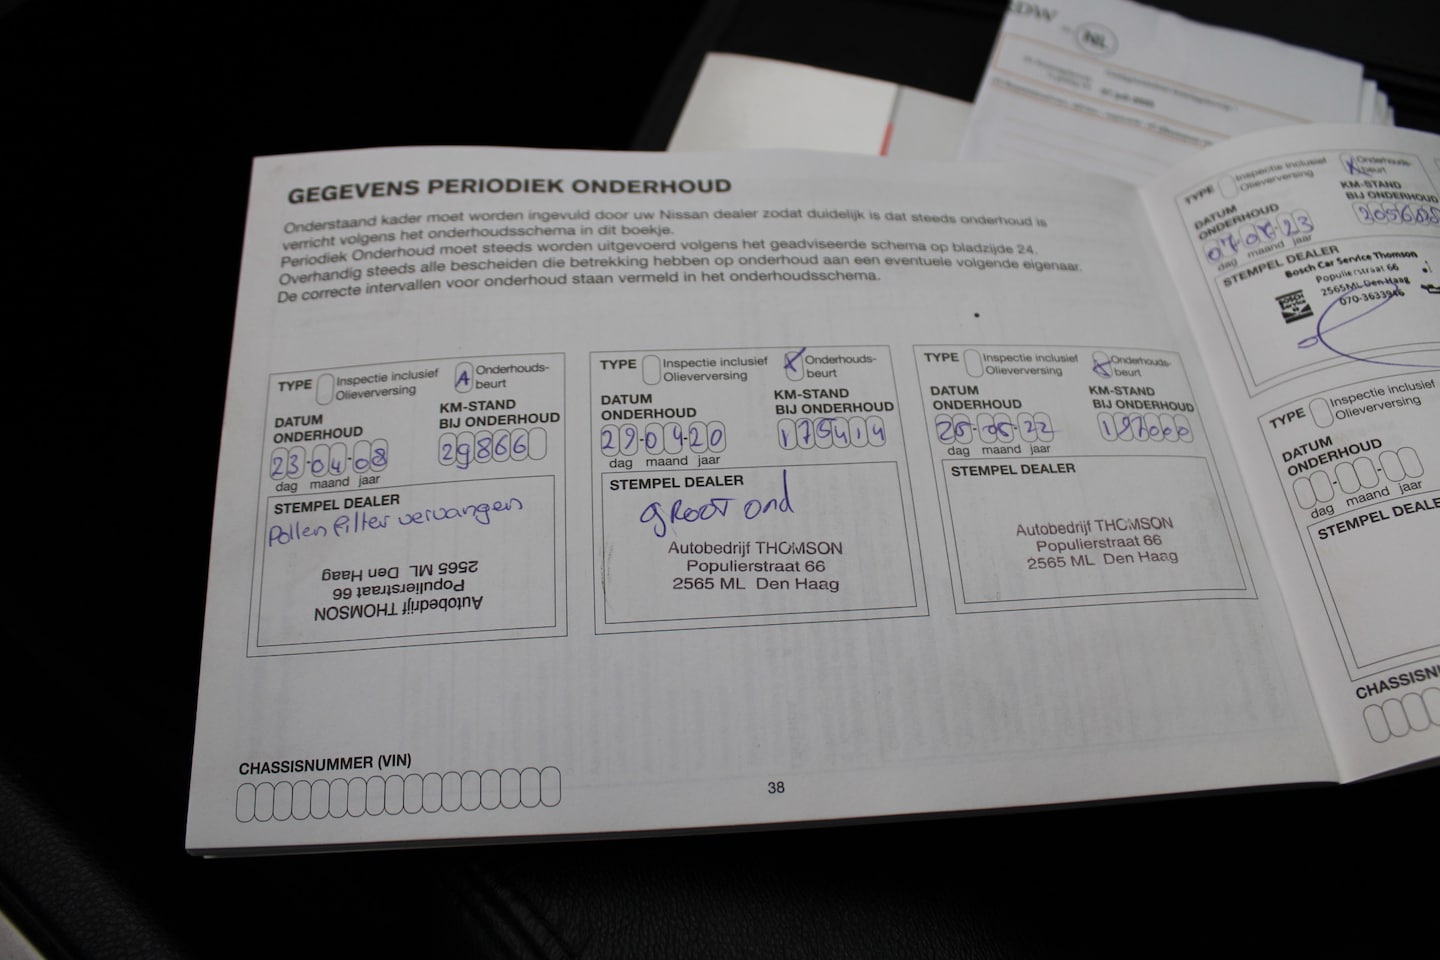 GEGEVENS PERIODIEK ONDERHOUD
Onderstaand kader moet worden ingevuld door uw Nissan dealer zodat duidelijk is dat steeds onderhoud is
verricht volgens het onderhoudsschema in dit boekje.
Periodiek Onderhoud moet steeds worden uitgevoerd volgens het geadviseerde schema op bladzijde 24.
Overhandig steeds alle bescheiden die betrekking hebben op onderhoud aan een eventuele volgende eigenaar.
De correcte intervallen voor onderhoud staan vermeld in het onderhoudsschema.
TYPE Inspectie inclusief Olieverversing Onderhouds-beurt
DATUM ONDERHOUD
KM-STAND BIJ ONDERHOUD
23-04-08
29866
dag maand jaar
STEMPEL DEALER
Pollen filter vervangen
Autobedrijf THOMSON
Populierstraat 66
2565 ML Den Haag
TYPE Inspectie inclusief Olieverversing X Onderhouds-beurt
DATUM ONDERHOUD
KM-STAND BIJ ONDERHOUD
29-04-20
175414
dag maand jaar
STEMPEL DEALER
GROOT ond
Autobedrijf THOMSON
Populierstraat 66
2565 ML Den Haag
TYPE Inspectie inclusief Olieverversing X Onderhouds-beurt
DATUM ONDERHOUD
KM-STAND BIJ ONDERHOUD
197000
dag maand jaar
STEMPEL DEALER
Autobedrijf THOMSON
Populierstraat 66
2565 ML Den Haag
CHASSISNUMMER (VIN)
38
TYPE Inspectie inclusief Olieverversing X Onderhouds-beurt
DATUM ONDERHOUD
KM-STAND BIJ ONDERHOUD
dag maand jaar
STEMPEL DEALER
Bosch Car Service Thomson
Populierstraat 66
2565ML Den-Haag
070-3633946
TYPE Inspectie inclusief Olieverversing
DATUM ONDERHOUD
dag maand jaar
STEMPEL
NL